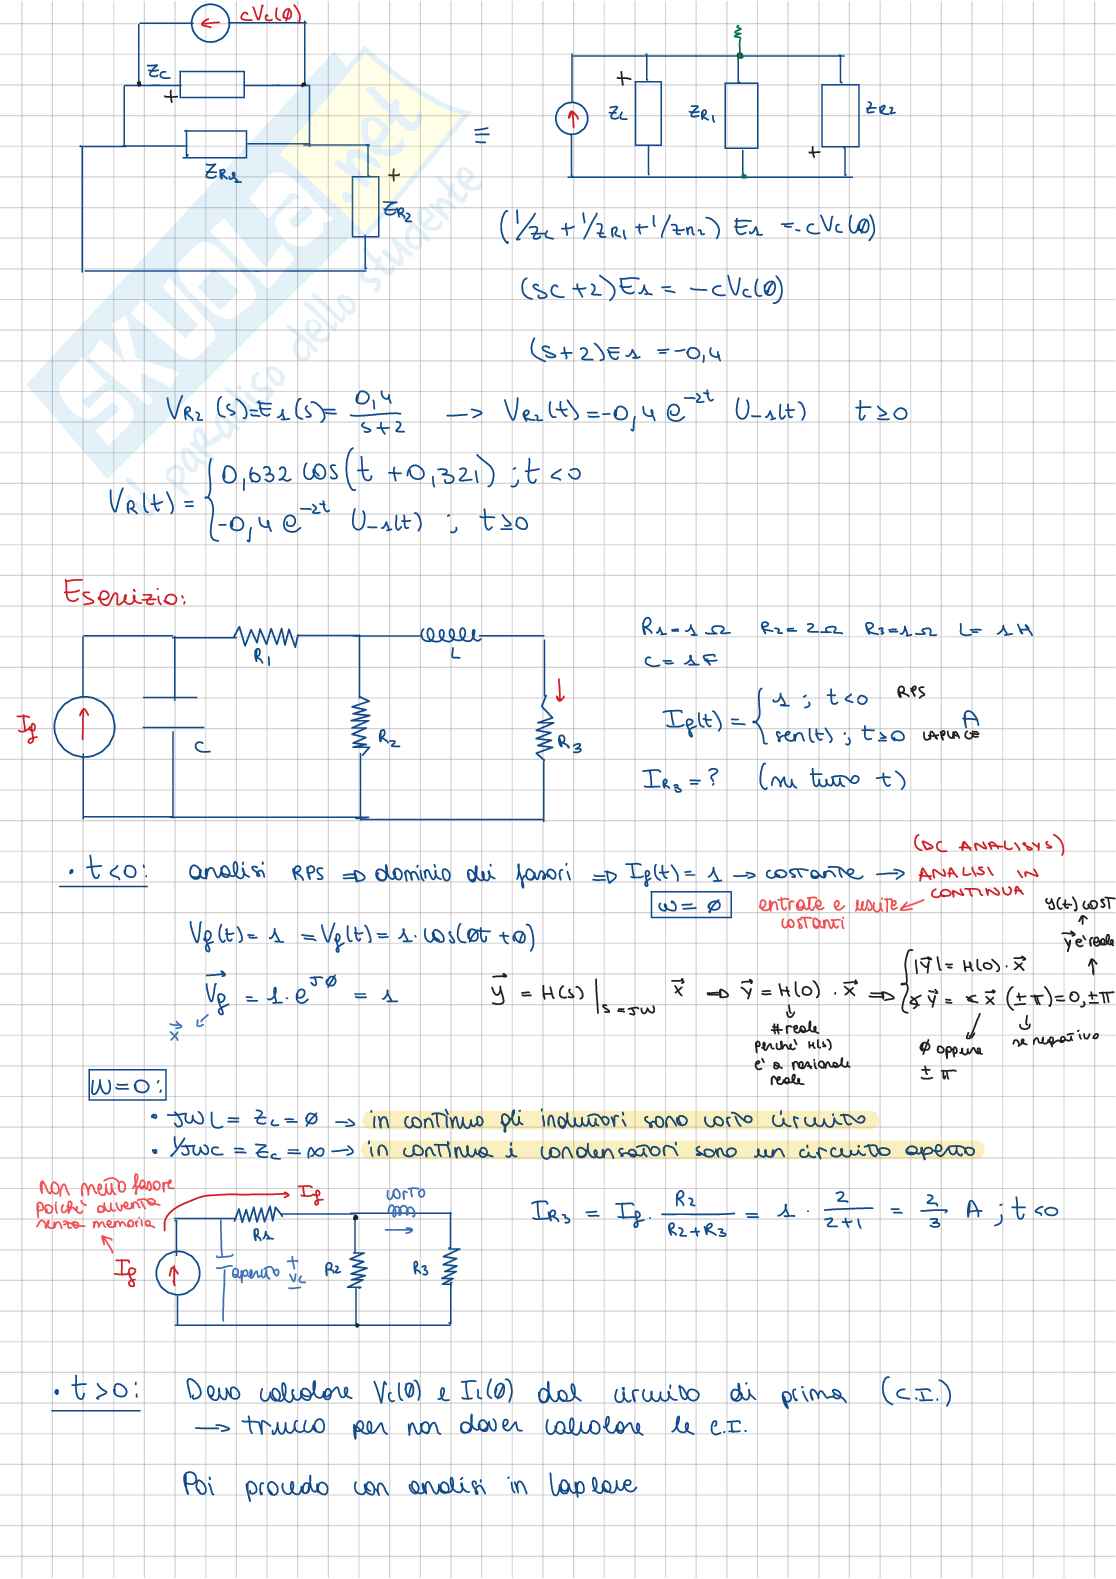 cVc(0)
Zc
+
ZR1
+
ZR2
≡
+
Zc
ZR1
ZR2
+
(1/Zc + 1/ZR1 + 1/ZR2) E1 = -cVc(0)
(sc + 2) E1 = -cVc(0)
(s+2) E1 = -0,4
VR2(s) = E1(s) = 0,4/(s+2) → VR2(t) = -0,4 e^-2t U-1(t) t ≥ 0
VR(t) = { 0,632 cos(t + 0,321) ; t < 0
-0,4 e^-2t U-1(t) ; t ≥ 0
SKUOLA.net
paradiso dello studente
Esercizio:
Ig
C
R1
R2
L
R3
R1 = 1 Ω R2 = 2 Ω R3 = 1 Ω L = 1 H
C = 1 F
Ig(t) = { 1 ; t < 0 RPS
sen(t) ; t ≥ 0 LAPLACE A
IR3 = ? (su tutto t)
(DC ANALISYS)
• t < 0: analisi RPS ⇒ dominio dei fasori ⇒ Ig(t) = 1 → costante → ANALISI IN CONTINUA
w = 0
entrate e uscite costanti
y(t) COST
y è reale
Vg(t) = 1 = Vg(t) = 1·cos(0t + 0)
Vg = 1·e^J0 = 1
x
y = H(s)|s=Jw x ⇒ y = H(0)·x ⇒ { |Y| = H(0)·x
∢Y = ∢x (±π) = 0, ±π
# reale
perché H(s)
è a razionale
reale
0 oppure
± π
se negativo
w = 0:
• JWL = ZL = 0 → in continua gli induttori sono corto circuito
• 1/JWC = Zc = ∞ → in continua i condensatori sono un circuito aperto
non metto fasore
poiché diventa
senza memoria
Ig
Ig
R1
corto
aperto
+
Vc
-
R2
R3
IR3 = Ig · R2/(R2+R3) = 1 · 2/(2+1) = 2/3 A ; t < 0
• t > 0: Devo calcolare Vc(0) e IL(0) dal circuito di prima (C.I.)
→ trucco per non dover calcolare le C.I.
Poi procedo con analisi in Laplace